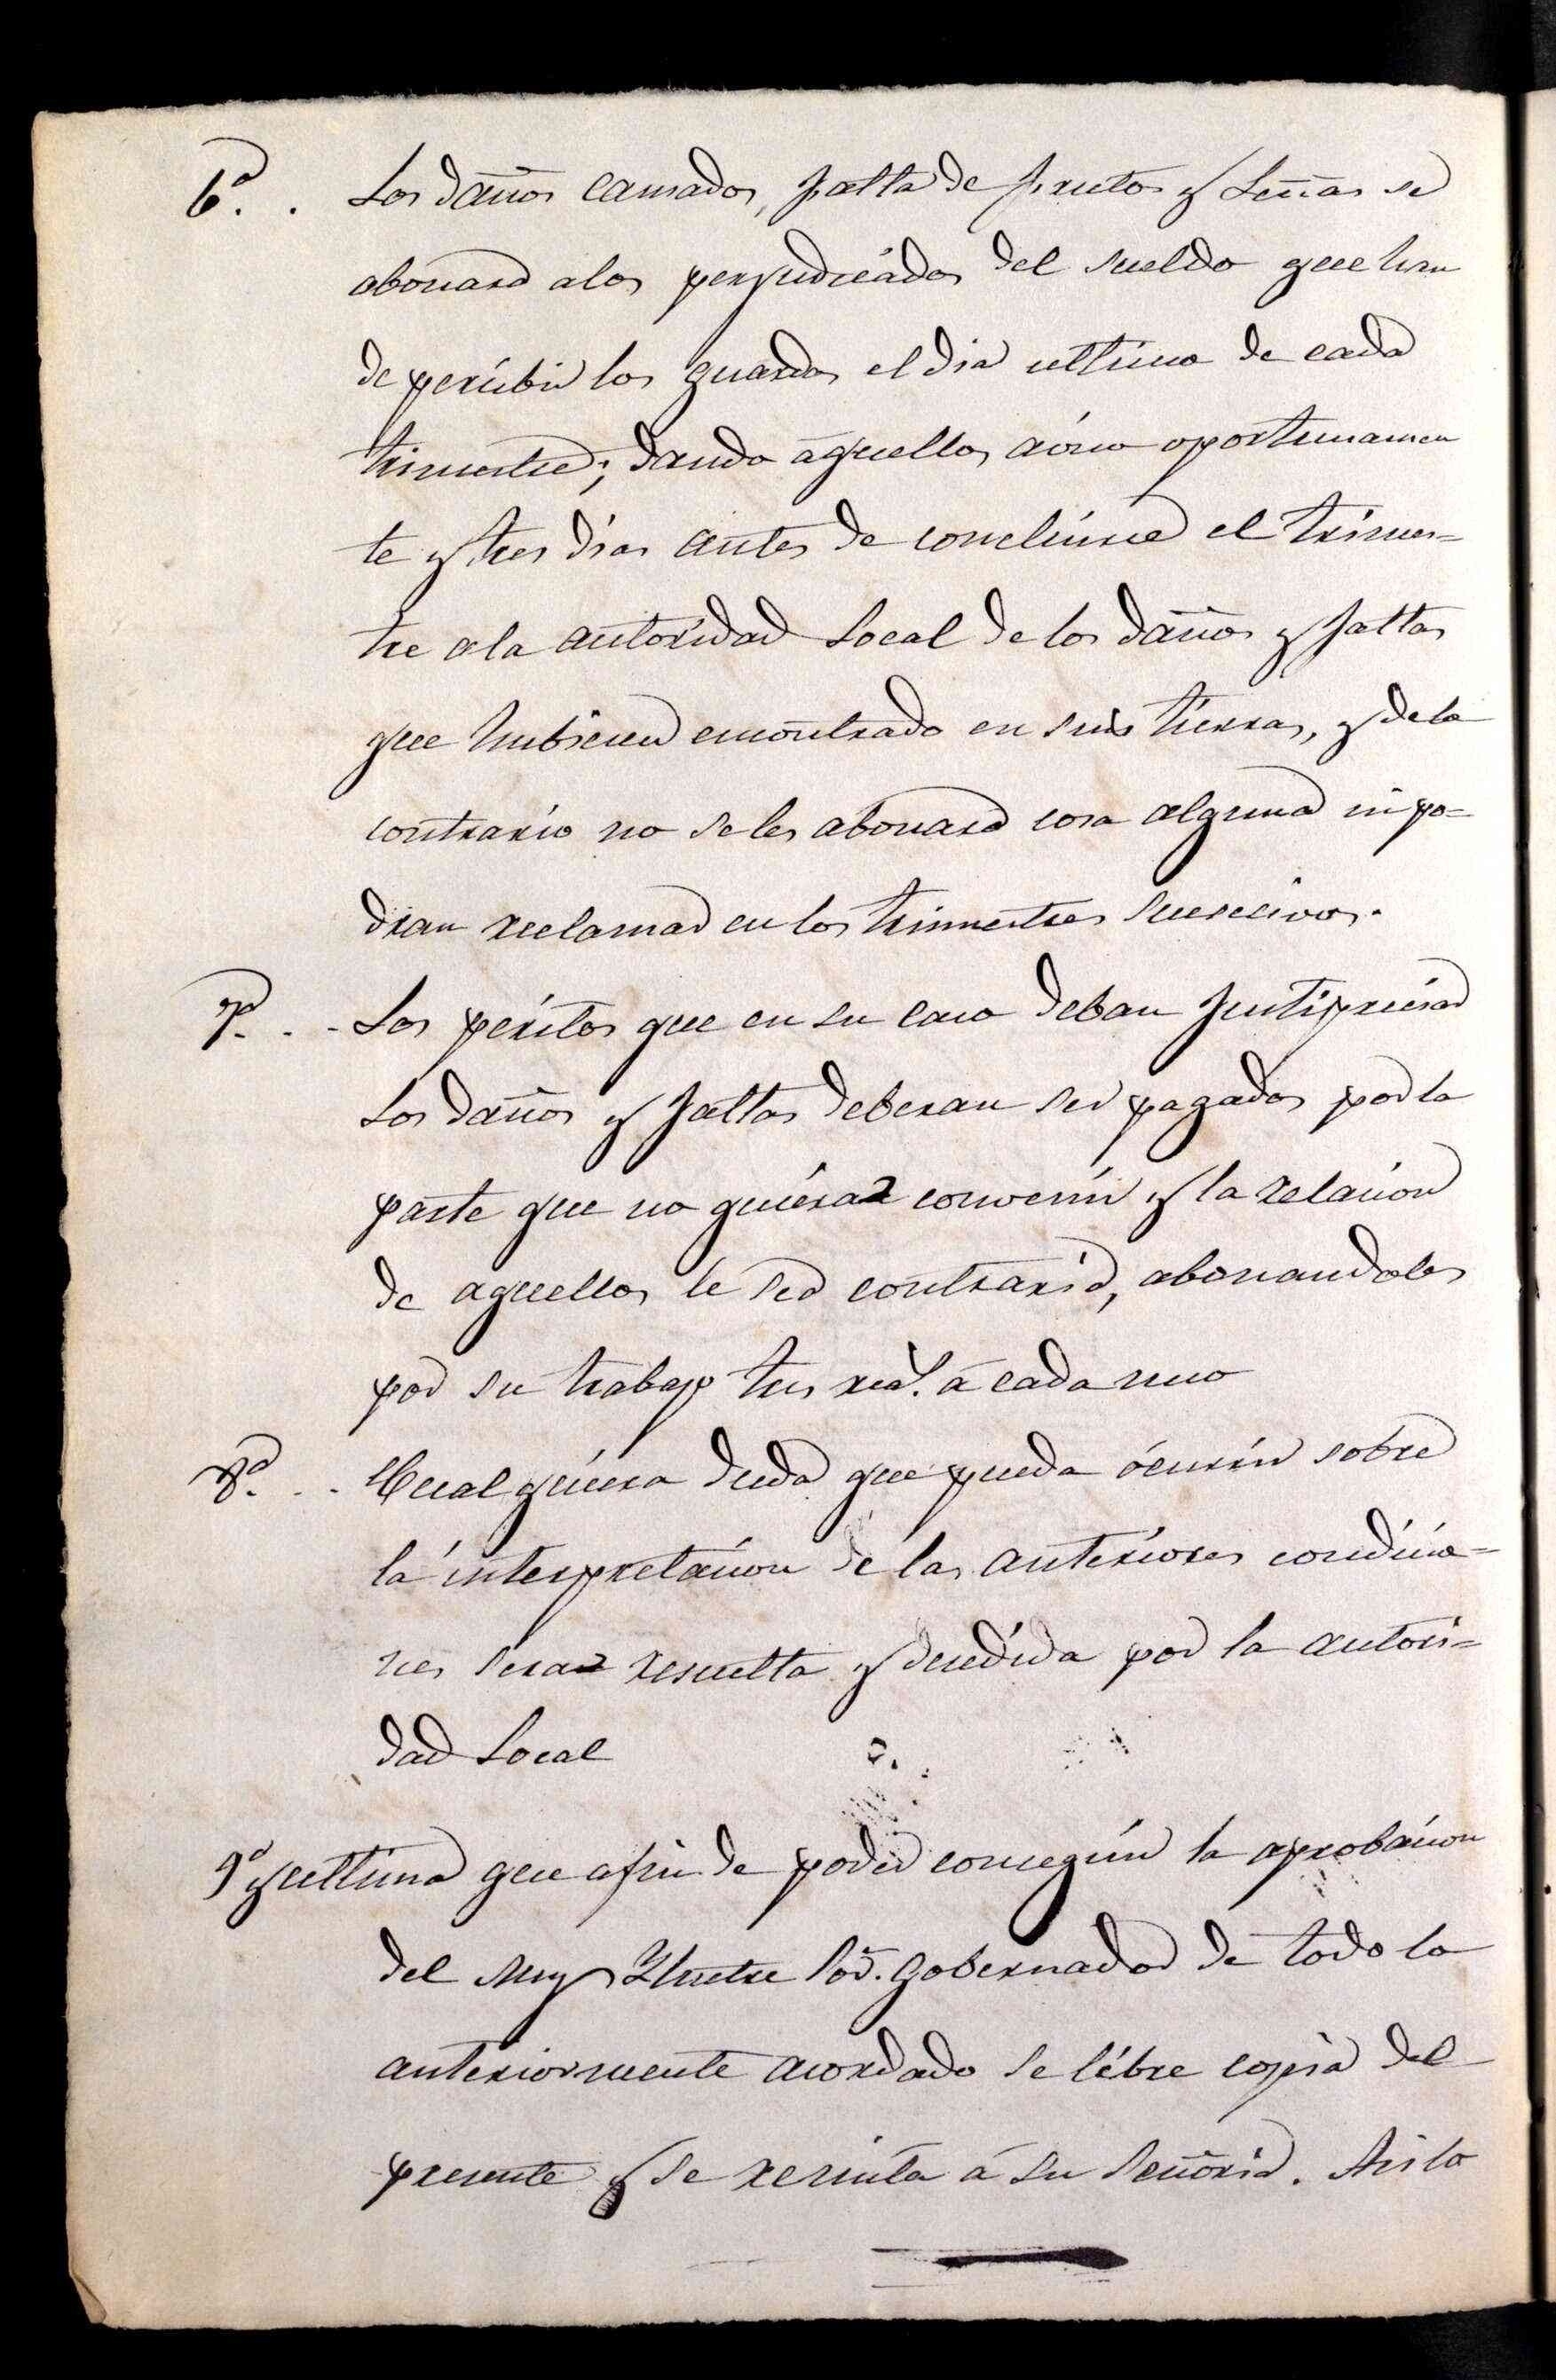 6ª. . Los daños causados, falta de frutos y Leñas se
abonara alos perjudicádos del sueldo que han
de percibir los guardas el dia ultimo de cada
trimestre; dando áquellos avíso oportunamen
te y tres días antes de concluirse el trimes=
tre ala autoridad Local de los daños y faltas
que hubiesen encontrado en sus tierras, y de lo
contrario no se les abonara cosa alguna ni po=
dran reclamar en los trimestres succecivos.
7ª. . - Los peritos que en su caso deban Justipreciar
Los daños y faltas deberan ser pagados por la
parte que no quiera convenir y la relacion
de aquellos le sea contraria, abonandoles
por su trabajo tres real.s á cada uno
8ª. . . Cualquiera duda que pueda ócurrir sobre
lá interpretacion de las anteriores condicio=
nes sera resuelta y decidida por la autori=
dad Local
9ª y ultima que afin de poder conseguir la aprobacion
del Muy Ylustre Sor. Gobernador de todo lo
anteriormente acordado se líbre copia del
presente y se remita á su Señoria. Asi lo